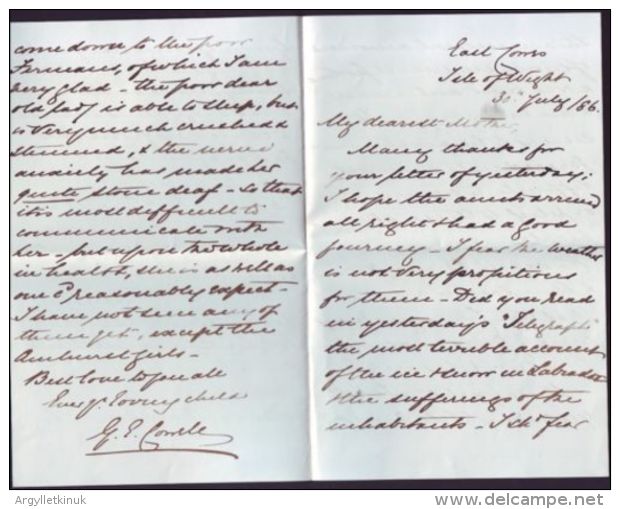 come down to the poor
Fermans, of which I am
very glad – the poor dear
old lady is able to sleep, but
is very much crushed &
stunned, & the nerve
anxiety has made her
quite stone deaf – So that
it is most difficult to
communicate with
her – but upon the whole
in health, she is as well as
one cd reasonably expect –
I have not seen any of
them yet, except the
Amhurst girls –
Best love to you all
Ever yr loving child
G. E. Cowell
East Cowes
Isle of Wight
30 July/86.
My dearest Mother,
Many thanks for
your letter of yesterday;
I hope the aunts arrived
all right & had a good
journey – I fear the weather
is not very propitious
for them – Did you read
in yesterday's "Telegraph"
the most terrible account
of the ice & snow in Labrador
& the sufferings of the
inhabitants – I shd fear
Argylletkinuk
www.delcampe.net